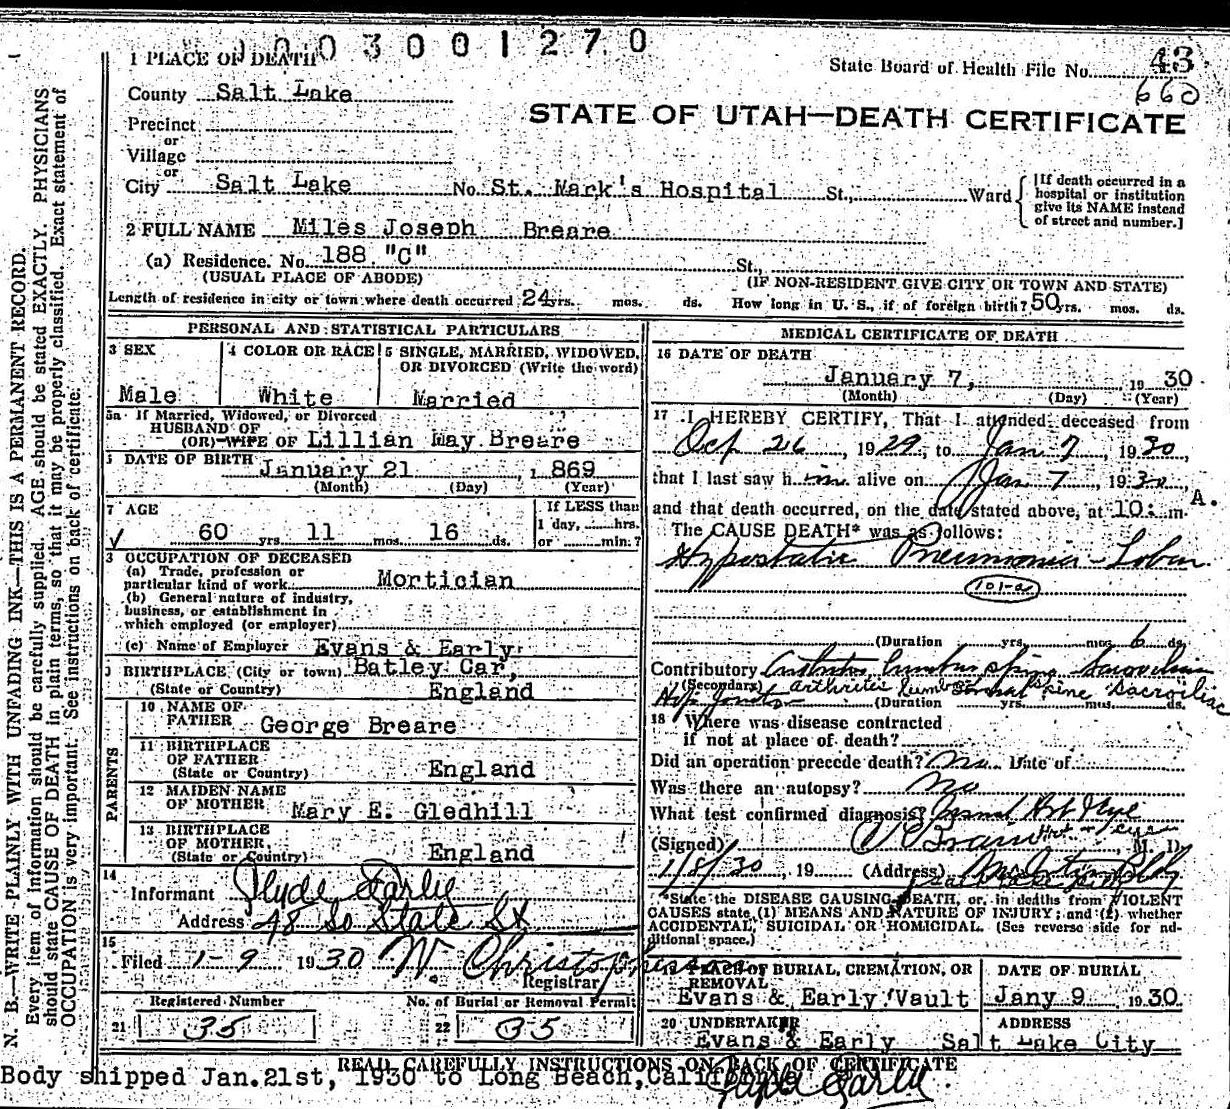 0003001270
1 PLACE OF DEATH
State Board of Health File No. 43
660
County Salt Lake
STATE OF UTAH—DEATH CERTIFICATE
Precinct
or
Village
or
City Salt Lake No. St. Mark's Hospital St., Ward
[If death occurred in a hospital or institution give its NAME instead of street and number.]
2 FULL NAME Miles Joseph Breare
(a) Residence. No. 188 "C" St.,
(USUAL PLACE OF ABODE) (IF NON-RESIDENT GIVE CITY OR TOWN AND STATE)
Length of residence in city or town where death occurred 24 yrs. mos. ds. How long in U. S., if of foreign birth? 50 yrs. mos. ds.
PERSONAL AND STATISTICAL PARTICULARS
3 SEX
Male
4 COLOR OR RACE
White
5 SINGLE, MARRIED, WIDOWED,
OR DIVORCED (Write the word)
Married
5a If Married, Widowed, or Divorced
HUSBAND OF
(OR) WIFE OF Lillian May Breare
DATE OF BIRTH January 21 , 1869
(Month) (Day) (Year)
7 AGE
60 yrs. 11 mos. 16 ds.
If LESS than
1 day, hrs.
or min.?
OCCUPATION OF DECEASED
(a) Trade, profession or
particular kind of work Mortician
(b) General nature of industry,
business, or establishment in
which employed (or employer)
(c) Name of Employer Evans & Early
BIRTHPLACE (City or town) Batley Car,
(State or Country) England
PARENTS
10 NAME OF
FATHER George Breare
11 BIRTHPLACE
OF FATHER
(State or Country) England
12 MAIDEN NAME
OF MOTHER Mary E. Gledhill
13 BIRTHPLACE
OF MOTHER,
(State or Country) England
14
Informant Clyde Early
Address 48 So State St
15
Filed 1-9 1930 W. Christopherson
Registrar
Registered Number
21 35
No. of Burial or Removal Permit
22 35
MEDICAL CERTIFICATE OF DEATH
16 DATE OF DEATH
January 7, , 1930
(Month) (Day) (Year)
17 I HEREBY CERTIFY, That I attended deceased from
Oct 26, 1929, to Jan 7, 1930,
that I last saw him alive on Jan 7, 1930,
and that death occurred, on the date stated above, at 10: A. m.
The CAUSE DEATH* was as follows:
Hypostatic Pneumonia - Lobar
101-a
(Duration yrs. mos. 6 ds.
Contributory Arthritis lumbar spine Sacroiliac
(Secondary) arthritis lumbar spine Sacroiliac
Hip Joints (Duration yrs. mos. ds.
18 Where was disease contracted
if not at place of death?
Did an operation precede death? No Date of
Was there an autopsy? No
What test confirmed diagnosis?
(Signed) , M. D.
1/8/30, 19 (Address)
*State the DISEASE CAUSING DEATH, or, in deaths from VIOLENT
CAUSES state (1) MEANS AND NATURE OF INJURY; and (2) whether
ACCIDENTAL, SUICIDAL OR HOMICIDAL. (See reverse side for ad-
ditional space.)
PLACE OF BURIAL, CREMATION, OR
REMOVAL
Evans & Early Vault
DATE OF BURIAL
Jany 9 1930
20 UNDERTAKER
Evans & Early
ADDRESS
Salt Lake City
READ CAREFULLY INSTRUCTIONS ON BACK OF CERTIFICATE
Body shipped Jan.21st, 1930 to Long Beach, California
Clyde Early
N. B.—WRITE PLAINLY WITH UNFADING INK—THIS IS A PERMANENT RECORD.
Every item of information should be carefully supplied. AGE should be stated EXACTLY. PHYSICIANS
should state CAUSE OF DEATH in plain terms, so that it may be properly classified. Exact statement of
OCCUPATION is very important. See instructions on back of certificate.